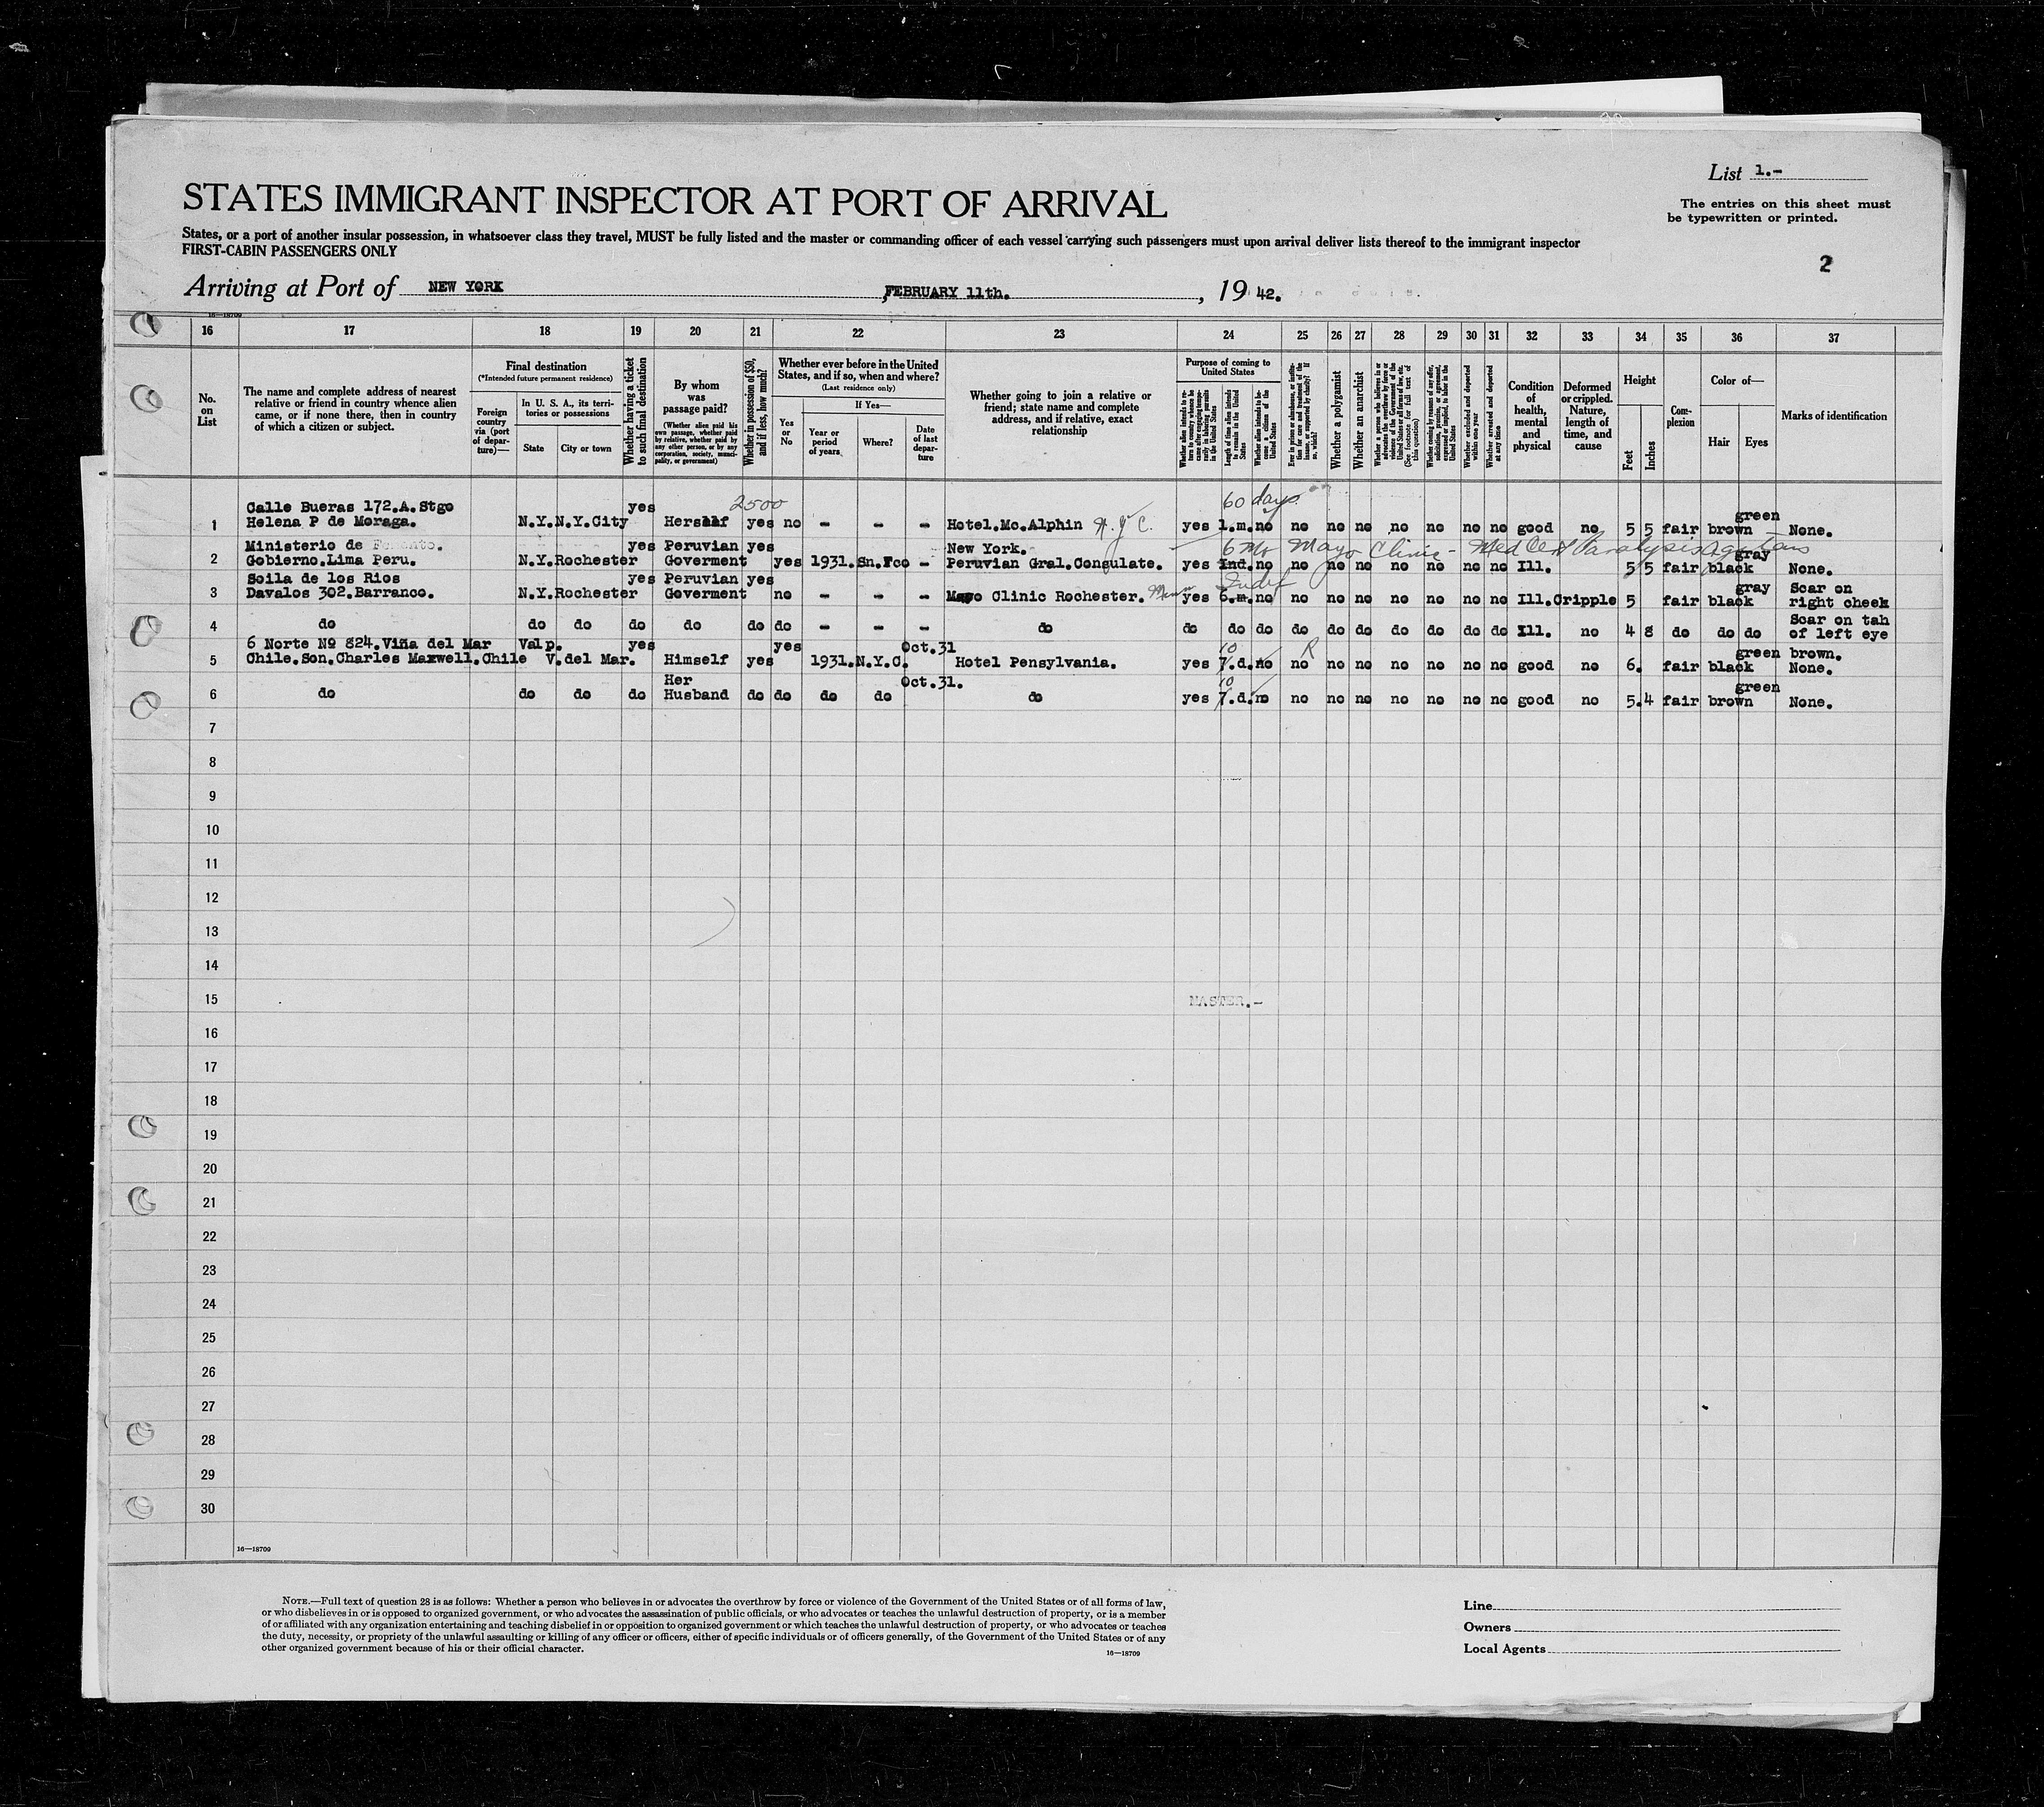 List 1.-
STATES IMMIGRANT INSPECTOR AT PORT OF ARRIVAL
The entries on this sheet must
be typewritten or printed.
States, or a port of another insular possession, in whatsoever class they travel, MUST be fully listed and the master or commanding officer of each vessel carrying such passengers must upon arrival deliver lists thereof to the immigrant inspector
FIRST-CABIN PASSENGERS ONLY
2
Arriving at Port of NEW YORK, FEBRUARY 11th., 1942.
16—18709
16 17 18 19 20 21 22 23 24 25 26 27 28 29 30 31 32 33 34 35 36 37
No. on List
The name and complete address of nearest relative or friend in country whence alien came, or if none there, then in country of which a citizen or subject.
Final destination
(*Intended future permanent residence)
Foreign country via (port of departure)—
In U. S. A., its territories or possessions
State
City or town
Whether having a ticket to such final destination
By whom was passage paid?
(Whether alien paid his own passage, whether paid by relative, whether paid by any other person, or by any corporation, society, municipality, or government)
Whether in possession of $50, and if less, how much?
Whether ever before in the United States, and if so, when and where?
(Last residence only)
Yes or No
If Yes—
Year or period of years
Where?
Date of last departure
Whether going to join a relative or friend; state name and complete address, and if relative, exact relationship
Purpose of coming to United States
Whether alien intends to return to country whence he came after engaging temporarily in laboring pursuits in the United States
Length of time alien intends to remain in the United States
Whether alien intends to become a citizen of the United States
Ever in prison or almshouse, or institution for care and treatment of the insane, or supported by charity? If so, which?
Whether a polygamist
Whether an anarchist
Whether a person who believes in or advocates the overthrow by force or violence of the Government of the United States or all forms of law, etc. (See footnote for full text of this question)
Whether coming by reason of any offer, solicitation, promise, or agreement, expressed or implied, to labor in the United States
Whether excluded and deported within one year
Whether arrested and deported at any time
Condition of health, mental and physical
Deformed or crippled. Nature, length of time, and cause
Height
Feet
Inches
Complexion
Color of—
Hair
Eyes
Marks of identification
Calle Bueras 172.A.Stgo yes 2500 60 days green
1 Helena P de Moraga. N.Y. N.Y.City Herself yes no - - - Hotel.Mc.Alphin N.Y.C. yes 1.m. no no no no no no no no good no 5 5 fair brown None.
Ministerio de Fomento. yes Peruvian yes New York. 6 Mo Mayo Clinic - Med Cert Paralysis gray
2 Gobierno.Lima Peru. N.Y. Rochester Goverment yes 1931. Sn.Fco - Peruvian Gral.Consulate. yes Ind. no no no no no no no no Ill. 5 5 fair black None.
Soila de los Rios yes Peruvian yes Indef gray Scar on
3 Davalos 302.Barranco. N.Y. Rochester Goverment no - - - Mayo Clinic Rochester. Minn yes 6.m. no no no no no no no no Ill. Cripple 5 fair black right cheek
Scar on tah
4 do do do do do do do - - - do do do do do do do do do do do Ill. no 4 8 do do do of left eye
6 Norte Nº 824.Viña del Mar Valp. yes yes Oct.31 10 R green brown.
5 Chile.Son.Charles Maxwell.Chile V.del Mar. Himself yes 1931. N.Y.C. Hotel Pensylvania. yes 7.d. no no no no no no no no good no 6. fair black None.
Her Oct.31. 10 green
6 do do do do Husband do do do do do yes 7.d. no no no no no no no no good no 5.4 fair brown None.
7
8
9
10
11
12
13
14
15 MASTER.-
16
17
18
19
20
21
22
23
24
25
26
27
28
29
30
16—18709
NOTE.—Full text of question 28 is as follows: Whether a person who believes in or advocates the overthrow by force or violence of the Government of the United States or of all forms of law,
or who disbelieves in or is opposed to organized government, or who advocates the assassination of public officials, or who advocates or teaches the unlawful destruction of property, or is a member
of or affiliated with any organization entertaining and teaching disbelief in or opposition to organized government or which teaches the unlawful destruction of property, or who advocates or teaches
the duty, necessity, or propriety of the unlawful assaulting or killing of any officer or officers, either of specific individuals or of officers generally, of the Government of the United States or of any
other organized government because of his or their official character.
16—18709
Line
Owners
Local Agents